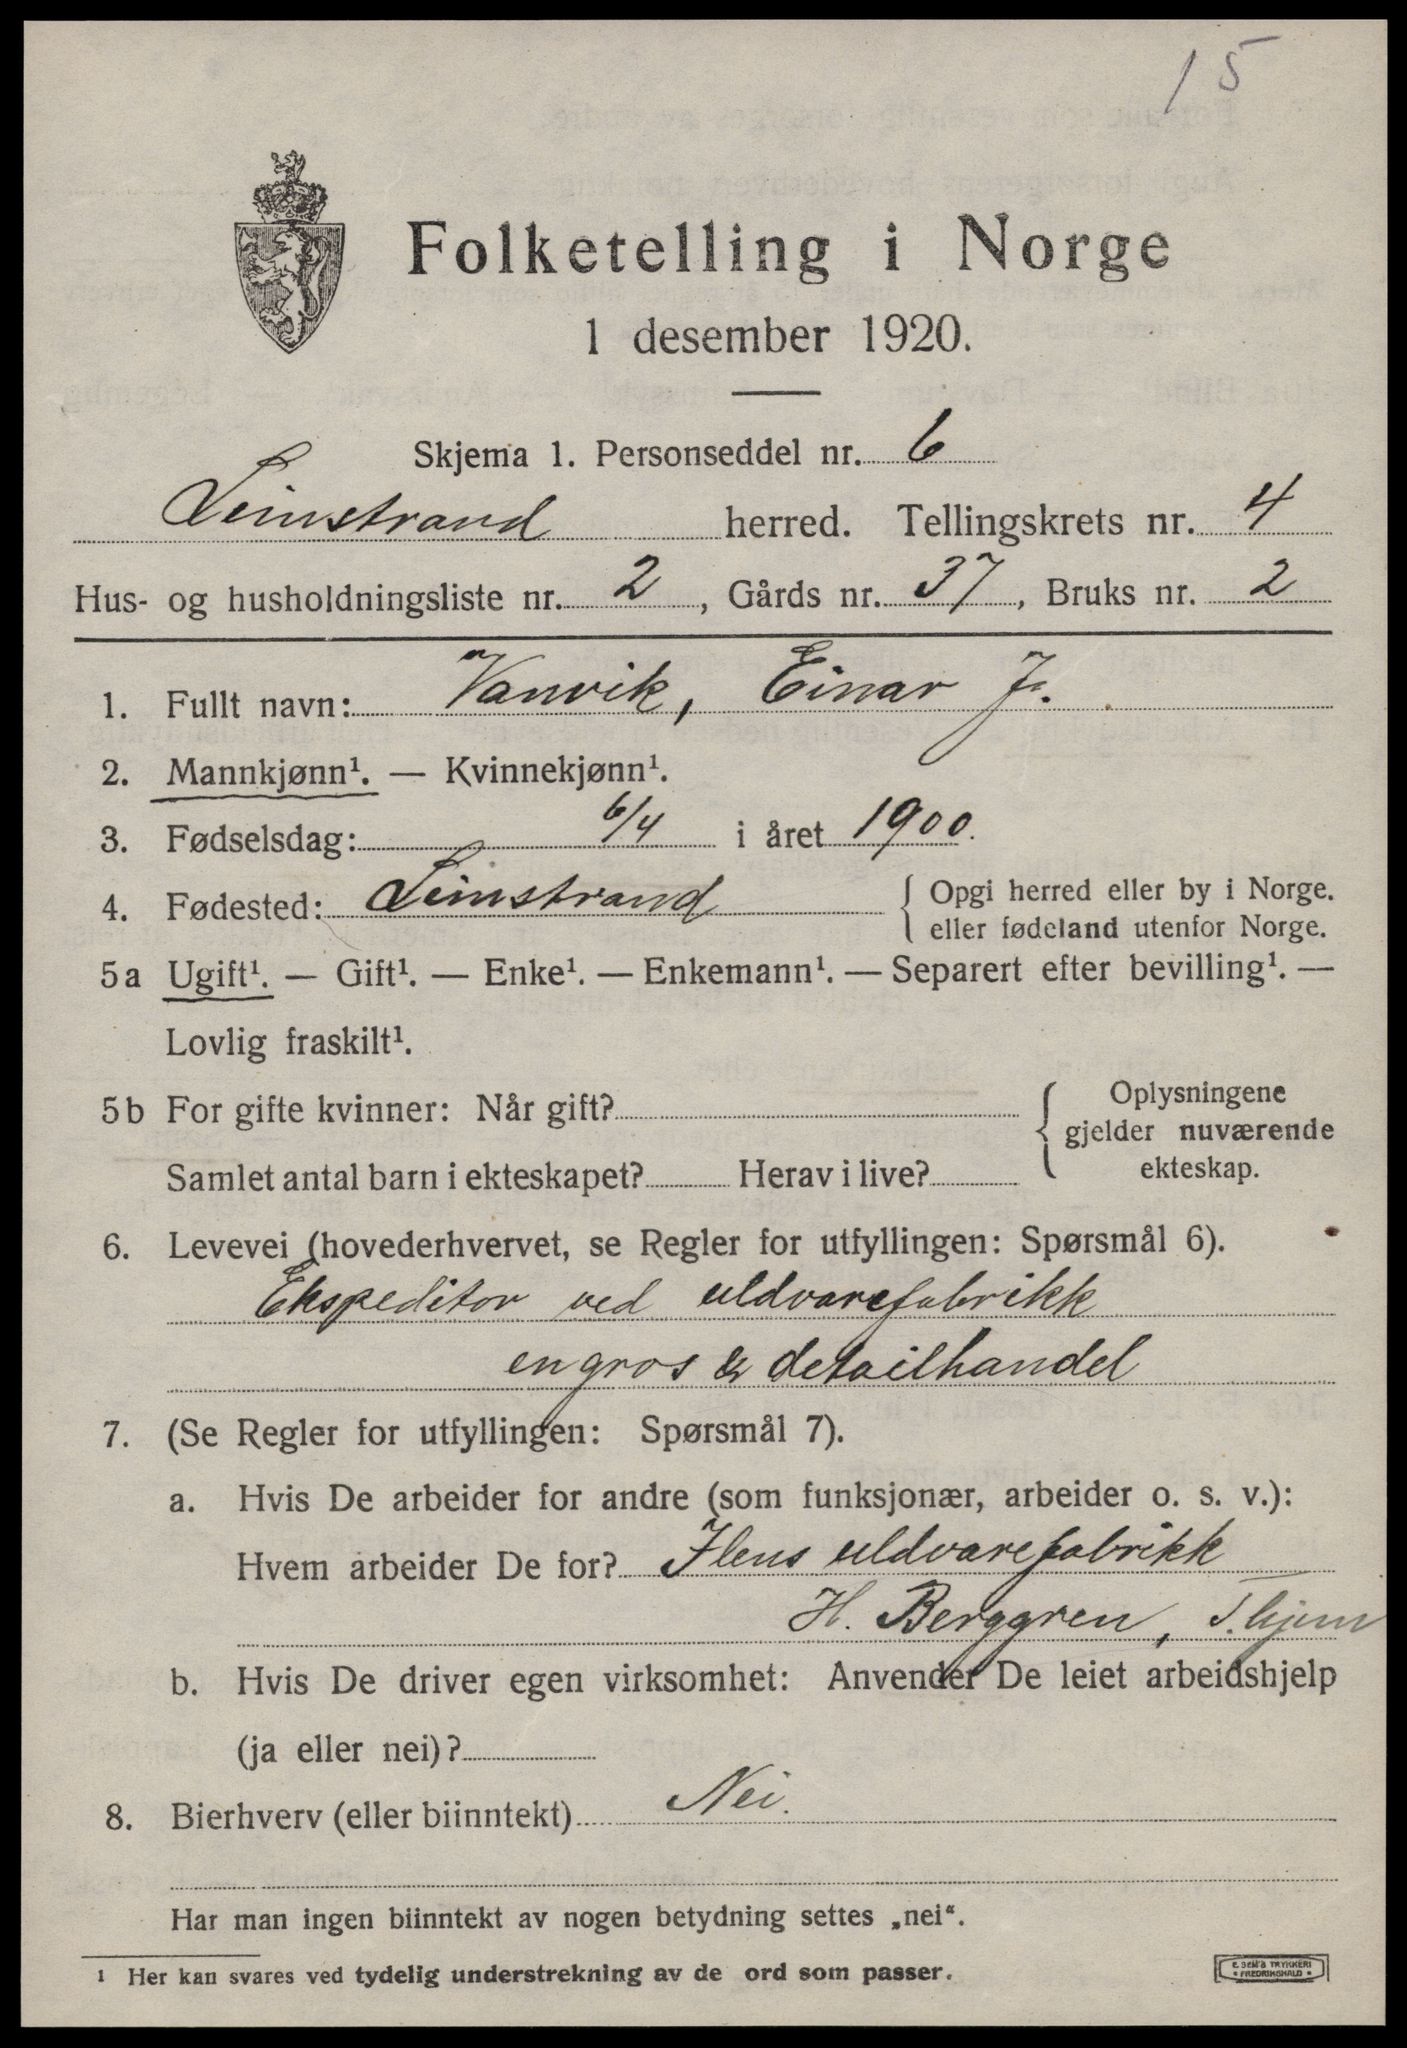 15
Folketelling i Norge
1 desember 1920.
Skjema 1. Personseddel nr. 6
Leinstrand herred. Tellingskrets nr. 4
Hus- og husholdningsliste nr. 2, Gårds nr. 37, Bruks nr. 2
1. Fullt navn: Vanvik, Einar J.
2. Mannkjønn¹. — Kvinnekjønn¹.
3. Fødselsdag: 6/4 i året 1900.
4. Fødested: Leinstrand { Opgi herred eller by i Norge.
eller fødeland utenfor Norge.
5a Ugift¹. — Gift¹. — Enke¹. — Enkemann¹. — Separert efter bevilling¹. —
Lovlig fraskilt¹.
5b For gifte kvinner: Når gift?
Samlet antal barn i ekteskapet? Herav i live?
{ Oplysningene
gjelder nuværende
ekteskap.
6. Levevei (hovederhvervet, se Regler for utfyllingen: Spørsmål 6).
Ekspeditor ved uldvarefabrikk
engros & detailhandel
7. (Se Regler for utfyllingen: Spørsmål 7).
a. Hvis De arbeider for andre (som funksjonær, arbeider o. s. v.):
Hvem arbeider De for? Ilens uldvarefabrikk
H. Berggren, T.hjem
b. Hvis De driver egen virksomhet: Anvender De leiet arbeidshjelp
(ja eller nei)?
8. Bierhverv (eller biinntekt) Nei.
Har man ingen biinntekt av nogen betydning settes „nei“.
¹ Her kan svares ved tydelig understrekning av de ord som passer.
E. SEM'S TRYKKERI
• FREDRIKSHALD •